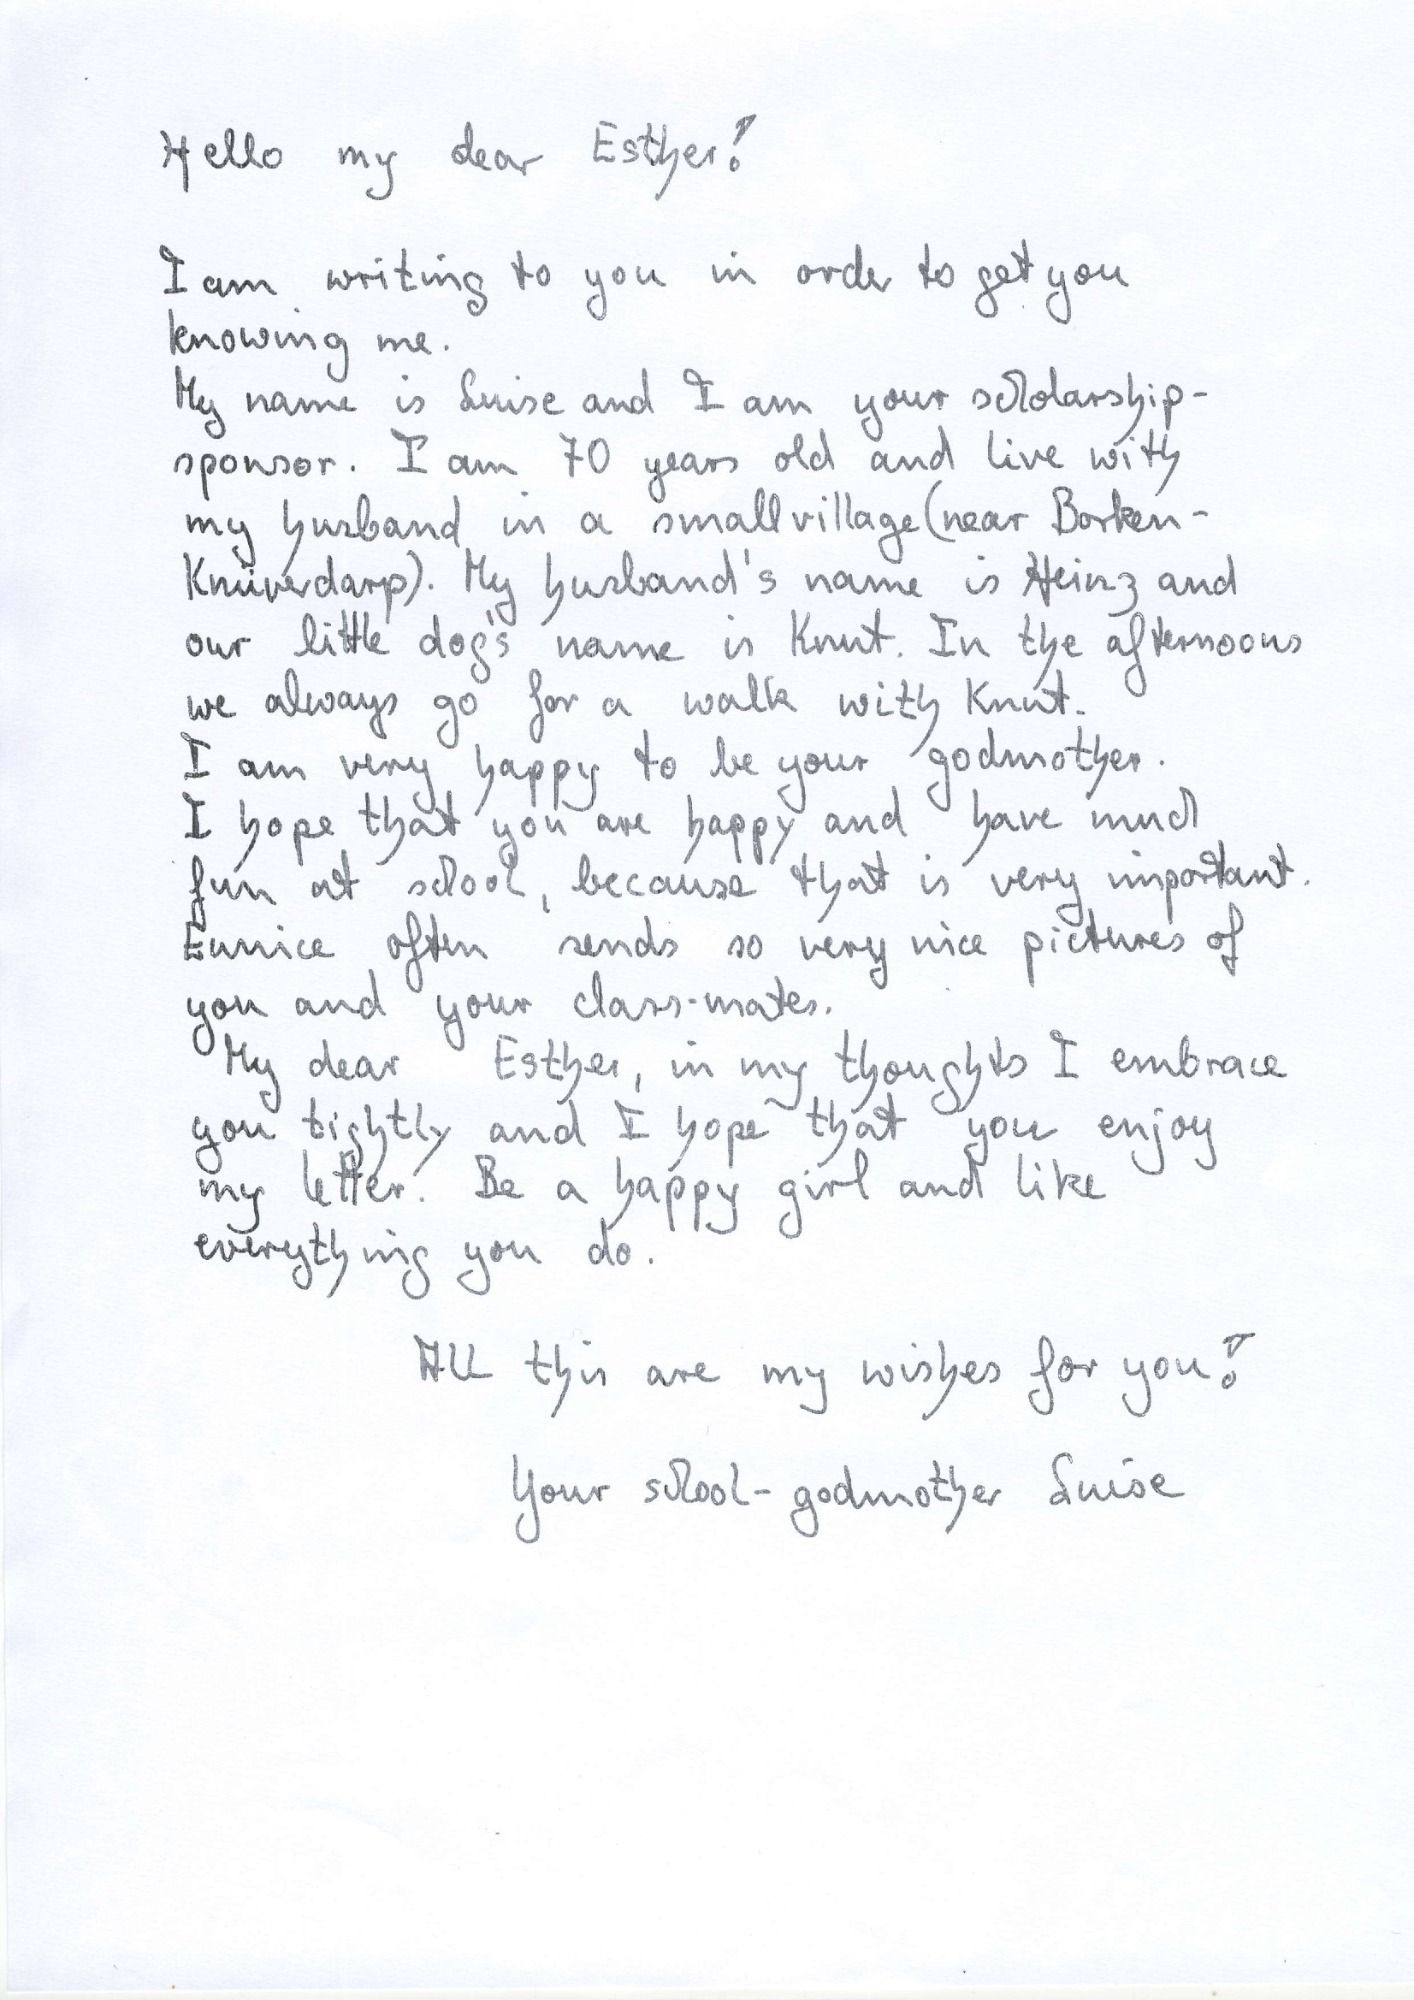 Hello my dear Esther!
I am writing to you in order to get you
knowing me.
My name is Luise and I am your scholarship-
sponsor. I am 70 years old and live with
my husband in a small village (near Borken-
Knüverdarp). My husband's name is Heinz and
our little dog's name is Knut. In the afternoons
we always go for a walk with Knut.
I am very happy to be your godmother.
I hope that you are happy and have much
fun at school, because that is very important.
Eunice often sends so very nice pictures of
you and your class-mates.
My dear Esther, in my thoughts I embrace
you tightly and I hope that you enjoy
my letter. Be a happy girl and like
everything you do.
All this are my wishes for you!
Your school-godmother Luise